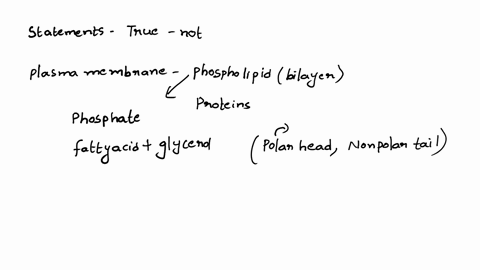 Statements - True - not
Plasma membrane - Phospholipid (bilayer)
Proteins
Phosphate
fattyacid + glycerol (Polar head, Nonpolar tail)